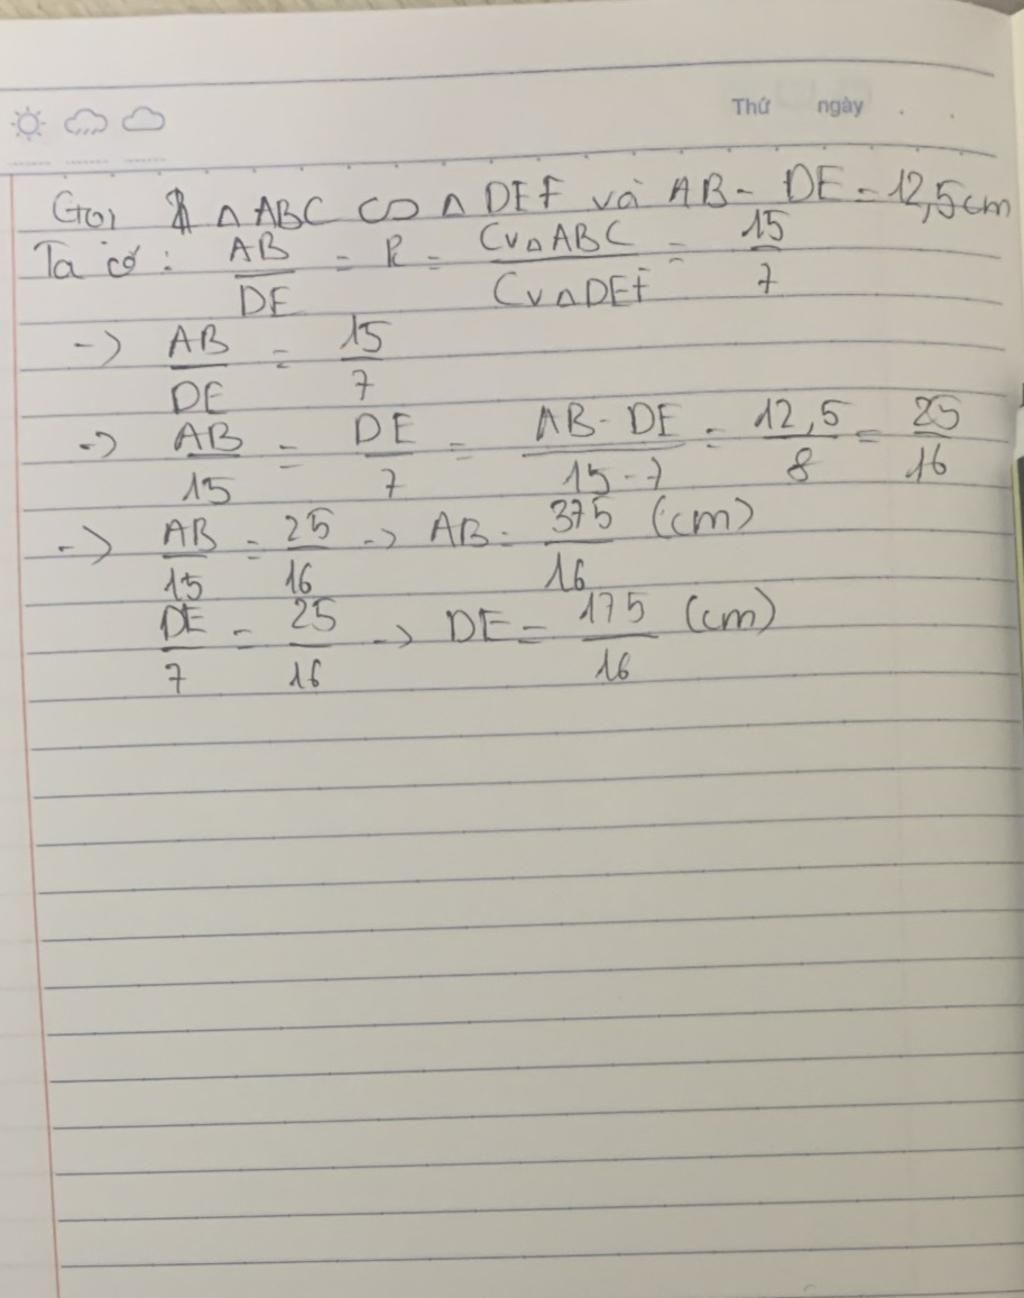 Thứ ngày
Gọi △ABC ∽ △DEF và AB - DE = 12,5cm
Ta có: AB/DE = k = Cv△ABC/Cv△DEF = 15/7
-> AB/DE = 15/7
-> AB/15 = DE/7 = AB-DE/15-7 = 12,5/8 = 25/16
-> AB/15 = 25/16 -> AB = 375/16 (cm)
DE/7 = 25/16 -> DE = 175/16 (cm)